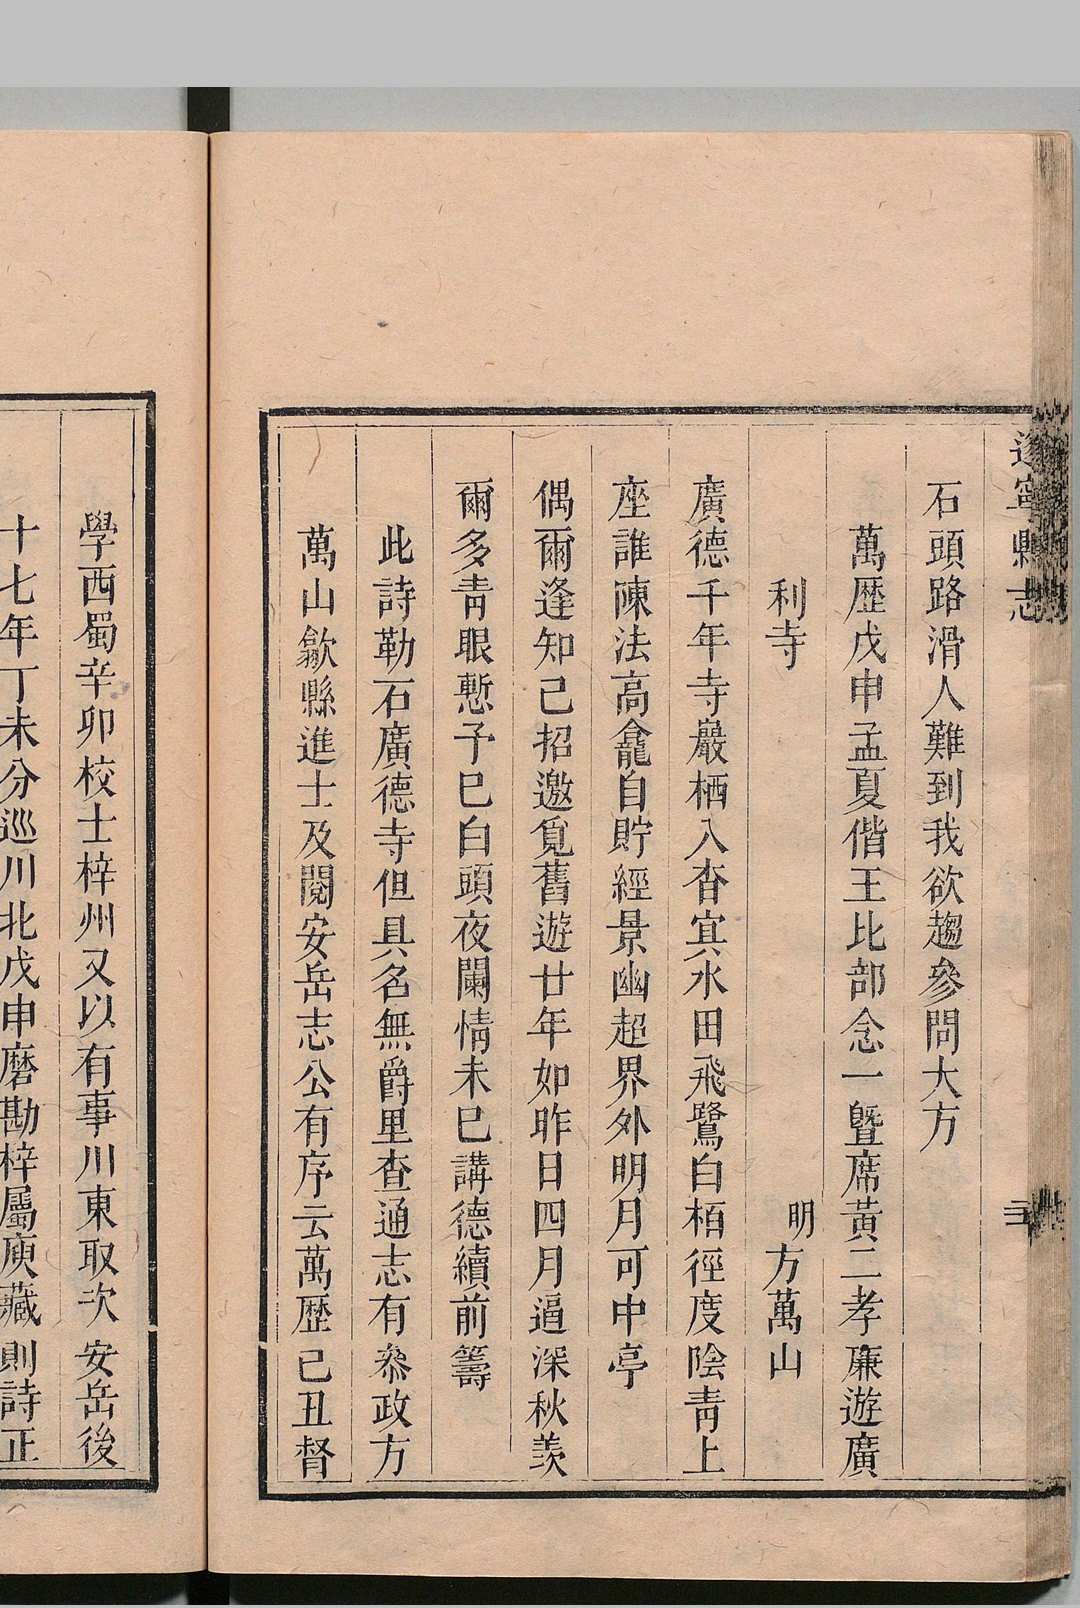 遂寧縣志
石頭路滑人難到我欲趨參問大方
萬歷戊申孟夏偕王比部念一暨席黃二孝亷遊廣
利寺
明方萬山
廣德千年寺巖栖入杳冥水田飛鷺白栢徑度陰青上
座誰陳法高龕自貯經景幽超界外明月可中亭
偶爾逢知己招邀覓舊遊廿年如昨日四月逼深秋羨
爾多青眼慙予巳白頭夜闌情未巳講德續前籌
此詩勒石廣德寺但具名無爵里查通志有叅政方
萬山歙縣進士及閱安岳志公有序云萬歷己丑督
學西蜀辛卯校士梓州又以有事川東取次安岳後
十七年丁未分巡川北戊申磨勘梓屬庾藏則詩正